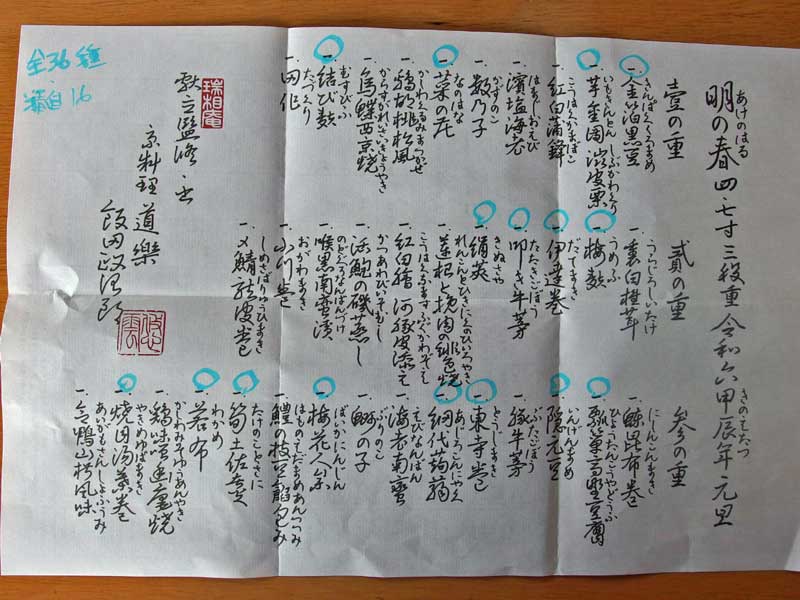 明の春 四・七寸三段重 令和六甲辰年・元旦
あけのはる
きのえたつ
壹の重
一、金箔黒豆
きんぱくくろまめ
一、芋金団 渋皮栗
いもきんとん しぶかわくり
一、紅白蒲鉾
こうはくかまぼこ
一、濱塩海老
はましおえび
一、数乃子
かずのこ
一、菜の花
なのはな
一、鶏胡桃松風
かしわくるみまつかぜ
一、烏鰈西京焼
からすがれいさいきょうやき
一、結び麩
むすびふ
一、田作
たづくり
貳の重
一、裏白椎茸
うらじろしいたけ
一、梅麩
うめふ
一、伊達巻
だてまき
一、叩き牛蒡
たたきごぼう
一、絹莢
きぬさや
一、蓮根と挽肉の緋色焼
れんこんとひきにくのひいろやき
一、紅白鱠 河豚皮添え
こうはくなますふぐかわぞえ
一、活鮑の磯蒸し
かつあわびいそむし
一、喉黒南蛮漬
のどぐろなんばんづけ
一、小川巻
おがわまき
一、〆鯖龍皮巻
しめさばりゅうひまき
参の重
一、鰊昆布巻
にしんこんぶまき
一、瓢箪高野豆腐
ひょうたんこうやどうふ
一、隠元豆
いんげんまめ
一、豚牛蒡
ぶたごぼう
一、東寺巻
とうじまき
一、網代蒟蒻
あじろこんにゃく
一、海老南蛮
えびなんばん
一、鰤の子
ぶりのこ
一、梅花人参
ばいかにんじん
一、鱧の枝豆餡包み
はものえだまめあんつつみ
一、筍土佐煮
たけのことさに
一、若布
わかめ
一、鶏味噌幽庵焼
かしわみそゆうあんやき
一、焼目湯葉巻
やきめゆばまき
一、合鴨山椒風味
あいがもさんしょうふうみ
瑞相庵
監修
京料理 道楽
飯田
全36種